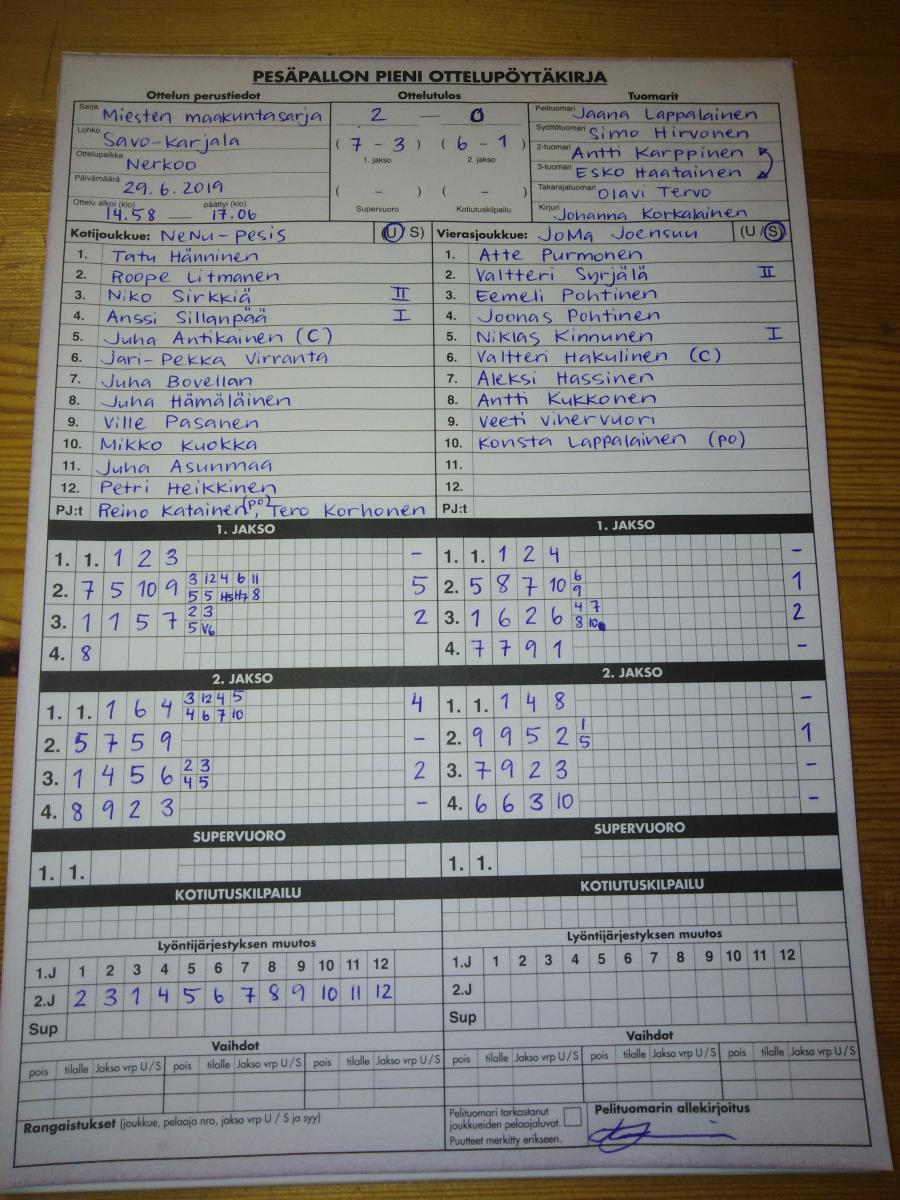 PESÄPALLON PIENI OTTELUPÖYTÄKIRJA
Ottelun perustiedot Ottelutulos Tuomarit
Sarja Miesten maakuntasarja
Lohko Savo-Karjala
Ottelupaikka Nerkoo
Päivämäärä 29.6.2019
Ottelu alkoi (klo) päättyi (klo)
14.58 — 17.06
2 — 0
(7 - 3) (6 - 1)
1. jakso 2. jakso
( - ) ( - )
Supervuoro Kotiutuskilpailu
Pelituomari Jaana Lappalainen
Syöttötuomari Simo Hirvonen
2-tuomari Antti Karppinen
3-tuomari Esko Haatainen
Takarajatuomari Olavi Tervo
Kirjuri Johanna Korkalainen
Kotijoukkue: NeNu-Pesis (U S)
1. Tatu Hänninen
2. Roope Litmanen
3. Niko Sirkkiä II
4. Anssi Sillanpää I
5. Juha Antikainen (C)
6. Jari-Pekka Virranta
7. Juha Bovellan
8. Juha Hämäläinen
9. Ville Pasanen
10. Mikko Kuokka
11. Juha Asunmaa
12. Petri Heikkinen
PJ:t Reino Katainen (po), Tero Korhonen
Vierasjoukkue: JoMa Joensuu (U / S)
1. Atte Purmonen
2. Valtteri Syrjälä II
3. Eemeli Pohtinen
4. Joonas Pohtinen
5. Niklas Kinnunen I
6. Valtteri Hakulinen (C)
7. Aleksi Hassinen
8. Antti Kukkonen
9. Veeti Vihervuori
10. Konsta Lappalainen (po)
11.
12.
PJ:t
1. JAKSO
1. 1. 1 2 3 -
2. 7 5 10 9 3 12 4 6 11 5
5 5 H5 H7 8
3. 1 1 5 7 2 3 2
5 V6
4. 8
1. JAKSO
1. 1. 1 2 4 -
2. 5 8 7 10 6 1
9
3. 1 6 2 6 4 7 2
8 10
4. 7 7 9 1 -
2. JAKSO
1. 1. 1 6 4 3 12 4 5 4
4 6 7 10
2. 5 7 5 9 -
3. 1 4 5 6 2 3 2
4 5
4. 8 9 2 3 -
2. JAKSO
1. 1. 1 4 8 -
2. 9 9 5 2 1 1
5
3. 7 9 2 3 -
4. 6 6 3 10 -
SUPERVUORO SUPERVUORO
1. 1. 1. 1.
KOTIUTUSKILPAILU KOTIUTUSKILPAILU
Lyöntijärjestyksen muutos
1.J 1 2 3 4 5 6 7 8 9 10 11 12
2.J 2 3 1 4 5 6 7 8 9 10 11 12
Sup
Lyöntijärjestyksen muutos
1.J 1 2 3 4 5 6 7 8 9 10 11 12
2.J
Sup
Vaihdot Vaihdot
pois tilalle Jakso vrp U / S pois tilalle Jakso vrp U / S pois tilalle Jakso vrp U / S
pois tilalle Jakso vrp U / S pois tilalle Jakso vrp U / S pois tilalle Jakso vrp U / S
Rangaistukset (joukkue, pelaaja nro, jakso vrp U / S ja syy)
Pelituomari tarkastanut
joukkueiden pelaajaluvat.
Puutteet merkitty erikseen.
Pelituomarin allekirjoitus